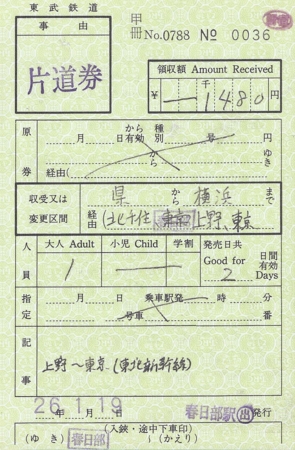 東武鉄道
甲
冊 No.0788 № 0036
事由
片道券
領収額 Amount Received
千
¥ 1480 円
原券
月 日 から有効 種別 号 円
から ゆき
経由( )
収受又は
変更区間
県 から 横浜 まで
経由 (北千住 東京 上野、東京
人員
大人 Adult 小児 Child 学割 発売日共
1 Good for 2 日間有効 Days
指定
月 日 乗車駅発 時 分
号車 番
記事
上野〜東京(東北新幹線)
26.1.19
年 月 日 春日部駅 出 発行
(入鋏・途中下車印)
(ゆき) 春日部 (かえり)